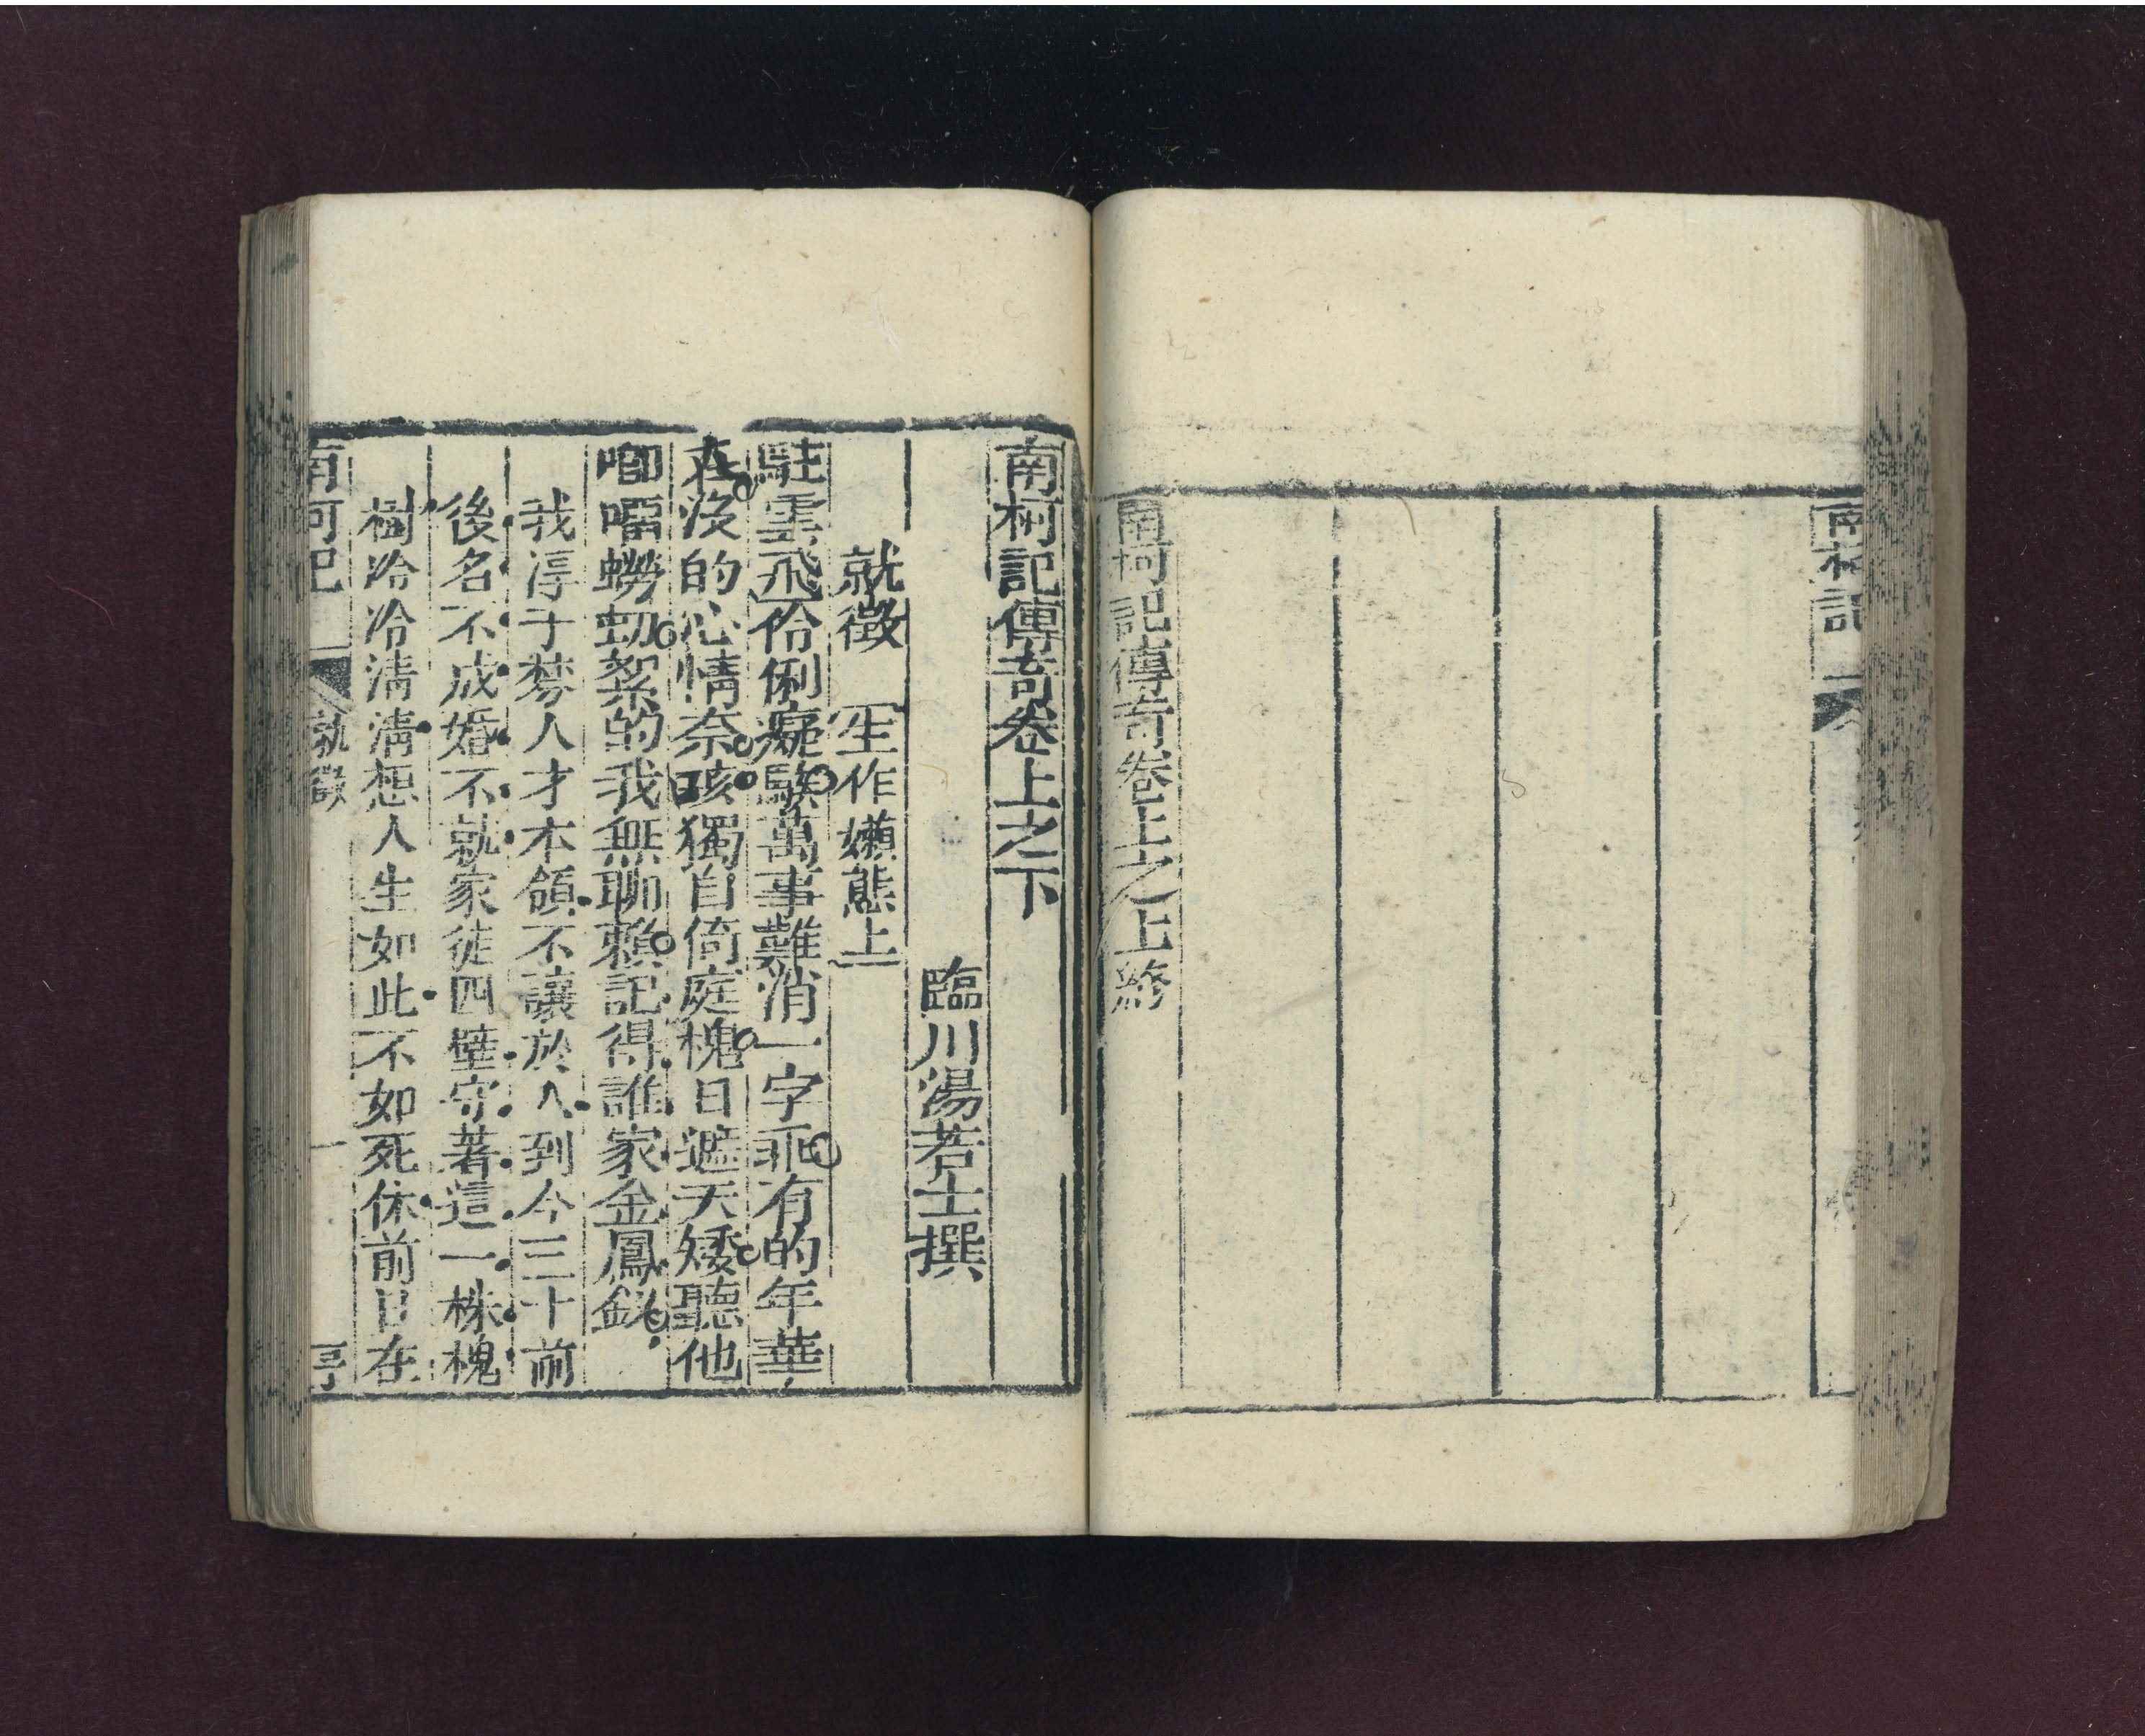 南柯記
南柯記傳奇卷上之上終
南柯記傳奇卷上之下
臨川湯若士撰
就徵 生作嬾態上
駐雲飛伶俐癡騃萬事難消一字乖有的年華
在沒的心情奈咳獨自倚庭槐日遮天矮聽他
唧嘓蟧蛁絮的我無聊賴記得誰家金鳳釵
我淳于棼人才本領不讓於人到今三十前
後名不成婚不就家徒四壁守著這一株槐
樹冷冷清清想人生如此不如死休前日在
南柯記 就徵 一 亭